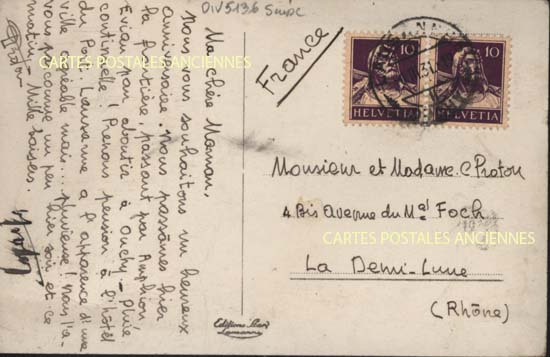 DIV5136 Suisse
France
10 10
HELVETIA HELVETIA
Ma chère Maman,
Nous vous souhaitons un heureux
anniversaire. Nous passâmes hier
la frontière passant par Amphion
Evian pour aboutir à Ouchy - Pluie
continuelle! Prenons pension à l'hôtel
du Port. Lausanne a l'apparence d'une
ville agréable mais... pluvieuse! Nous l'a-
vons vu comme un peu hier soir et ce
matin - Mille baisers.
Monsieur et Madame C Proton
4 Bis Avenue du Mal Foch
La Demi-Lune
(Rhône)
CARTES POSTALES ANCIENNES
CARTES POSTALES ANCIENNES
Editions
Lausanne